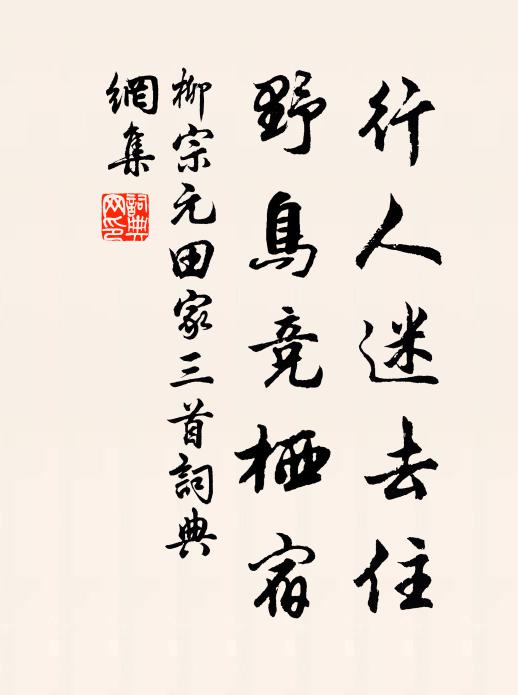 行人迷去住
野鳥競栖宿
柳宗元田家三首詞典
網集
詞典
网印